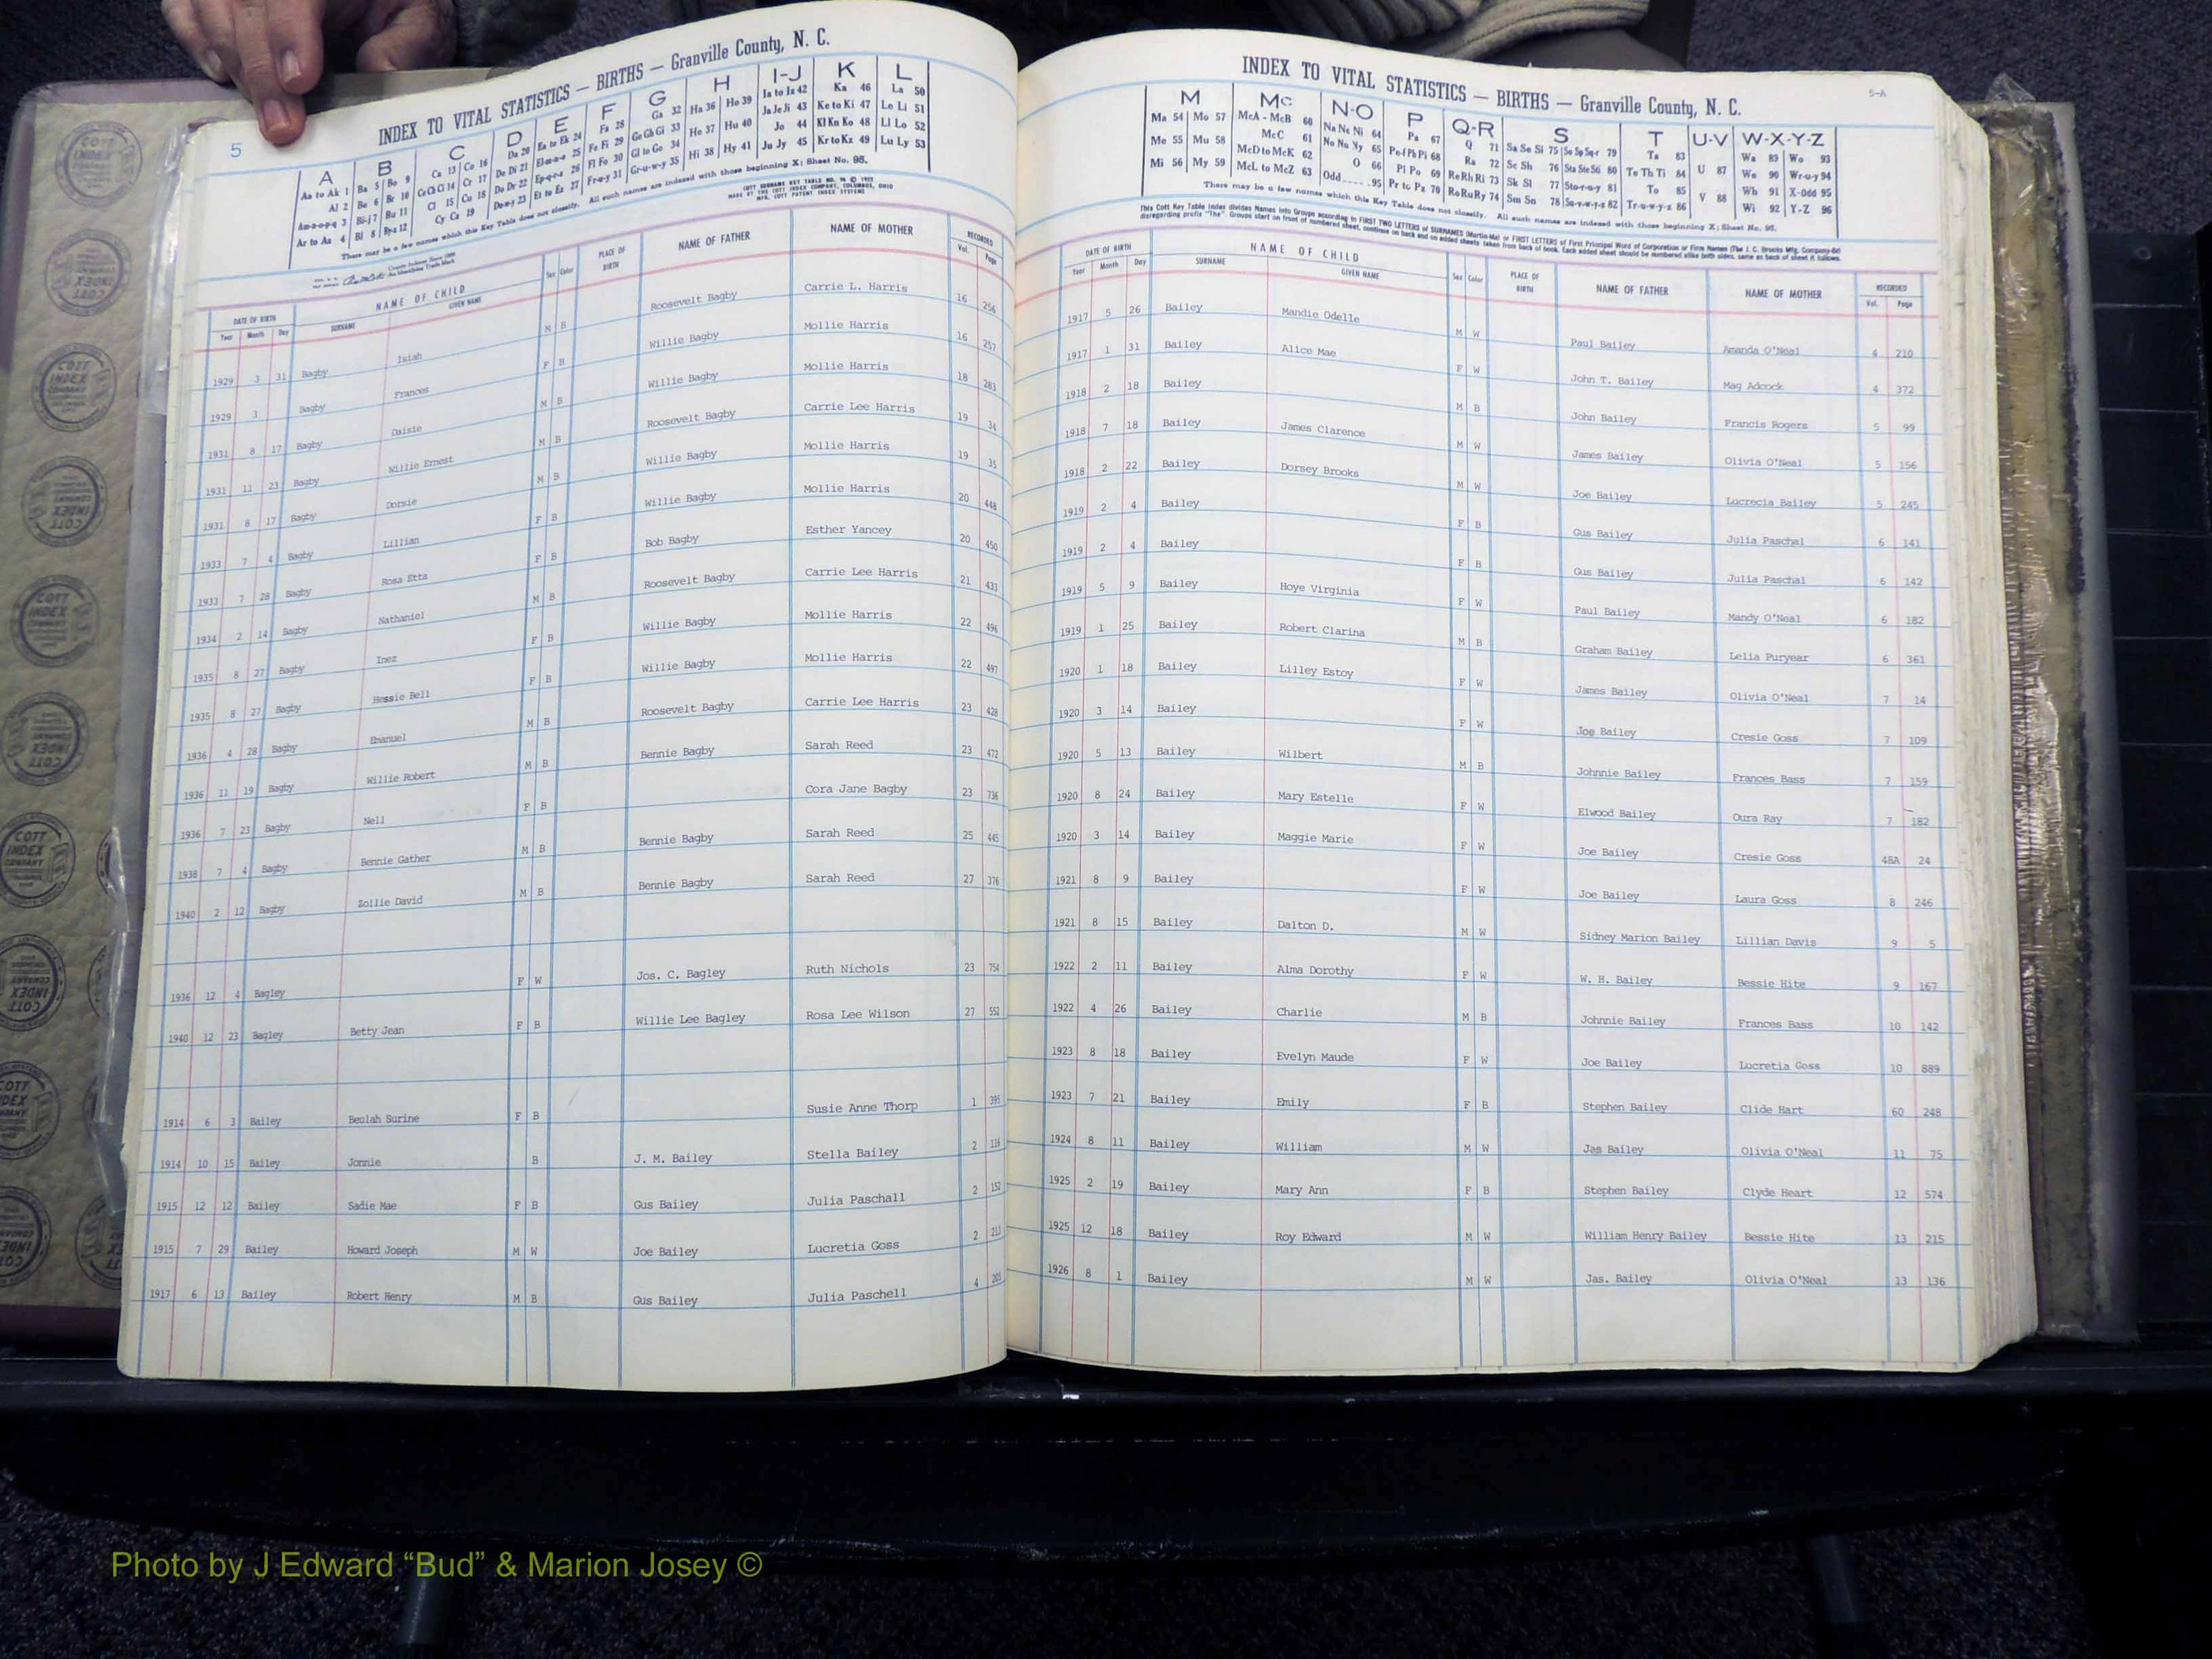 5
INDEX TO VITAL STATISTICS — BIRTHS — Granville County, N. C.
A B C D E F G H I-J K L
Aa to Ak 1 Ba 5 Bo 9 Ca 13 Co 16 Da 20 Ea to Ek 24 Fa 28 Ga 32 Ha 36 Ho 39 Ia to Iz 42 Ka 46 La 50
Al 2 Be 6 Br 10 Ce Ch Ci 14 Cr 17 De Di 21 El-m-n-o 25 Fe Fi 29 Ge Gh Gi 33 He 37 Hu 40 Ja Je Ji 43 Ke to Ki 47 Le Li 51
Am-n-o-p-q 3 Bi-j 7 Bu 11 Cl 15 Cu 18 Do Dr 22 Ep-q-r-s 26 Fl Fo 30 Gl to Go 34 Hi 38 Hy 41 Jo 44 Kl Kn Ko 48 Ll Lo 52
Ar to Az 4 Bl 8 Bys 12 Cy Cz 19 Du-w-y 23 Et to Ez 27 Fr-u-y 31 Gr-u-w-y 35 Ju Jy 45 Kr to Kz 49 Lu Ly 53
There may be a few names which this Key Table does not classify. All such names are indexed with those beginning X; Sheet No. 95.
DATE OF BIRTH NAME OF CHILD Sex Color PLACE OF BIRTH NAME OF FATHER NAME OF MOTHER RECORDED
Year Month Day SURNAME GIVEN NAME Vol. Page
1929 3 31 Bagby Isiah M B Roosevelt Bagby Carrie L. Harris 16 256
1929 3 Bagby Frances F B Willie Bagby Mollie Harris 16 257
1931 8 17 Bagby Daisie M B Willie Bagby Mollie Harris 18 283
1931 11 23 Bagby Willie Ernest M B Roosevelt Bagby Carrie Lee Harris 19 34
1931 8 17 Bagby Dorsie M B Willie Bagby Mollie Harris 19 35
1933 7 4 Bagby Lillian F B Willie Bagby Mollie Harris 20 448
1933 7 28 Bagby Rosa Etta F B Bob Bagby Esther Yancey 20 450
1934 2 14 Bagby Nathaniel M B Roosevelt Bagby Carrie Lee Harris 21 433
1935 8 27 Bagby Inez F B Willie Bagby Mollie Harris 22 496
1935 8 27 Bagby Hessie Bell F B Willie Bagby Mollie Harris 22 497
1936 4 28 Bagby Emanuel M B Roosevelt Bagby Carrie Lee Harris 23 428
1936 11 19 Bagby Willie Robert M B Bennie Bagby Sarah Reed 23 472
1936 7 23 Bagby Nell F B Cora Jane Bagby 23 736
1938 7 4 Bagby Bennie Gather M B Bennie Bagby Sarah Reed 25 445
1940 2 12 Bagby Zollie David M B Bennie Bagby Sarah Reed 27 376
1936 12 4 Bagley F W Jos. C. Bagley Ruth Nichols 23 754
1940 12 23 Bagley Betty Jean F B Willie Lee Bagley Rosa Lee Wilson 27 552
1914 6 3 Bailey Beulah Surine F B Susie Anne Thorp 1 395
1914 10 15 Bailey Jonnie B J. M. Bailey Stella Bailey 2 116
1915 12 12 Bailey Sadie Mae F B Gus Bailey Julia Paschall 2 152
1915 7 29 Bailey Howard Joseph M W Joe Bailey Lucretia Goss 2 211
1917 6 13 Bailey Robert Henry M B Gus Bailey Julia Paschell 4 205
5-A
INDEX TO VITAL STATISTICS — BIRTHS — Granville County, N. C.
M Mc N-O P Q-R S T U-V W-X-Y-Z
Ma 54 Mo 57 McA - McB 60 Na Ne Ni 64 Pa 67 Q 71 Sa Se Si 75 So Sp Sq-r 79 Ta 83 U 87 Wa 89 Wo 93
Me 55 Mu 58 McC 61 No Nu Ny 65 Pe-f Ph Pi 68 Ra 72 Sc Sh 76 Sta Ste Sti 80 Te Th Ti 84 V 88 We 90 Wr-u-y 94
Mi 56 My 59 McD to McK 62 O 66 Pl Po 69 Re Rh Ri 73 Sk Sl 77 Sto-r-u-y 81 To 85 Wh 91 X-Odd 95
McL to McZ 63 Odd 95 Pr to Pz 70 Ro Ru Ry 74 Sm Sn 78 Su-v-w-y-z 82 Tr-u-w-y-z 86 Wi 92 Y-Z 96
There may be a few names which this Key Table does not classify. All such names are indexed with those beginning X; Sheet No. 95.
This Cott Key Table Index divides Names into Groups according to FIRST TWO LETTERS of SURNAMES (Martin-Ma) or FIRST LETTERS of First Principal Word of Corporation or Firm Names (The J. C. Brooks Mfg. Company-Br)
disregarding prefix "The". Groups start on front of numbered sheet, continue on back and on added sheets taken from back of book. Each added sheet should be numbered alike both sides, same as back of sheet it follows.
DATE OF BIRTH NAME OF CHILD Sex Color PLACE OF BIRTH NAME OF FATHER NAME OF MOTHER RECORDED
Year Month Day SURNAME GIVEN NAME Vol. Page
1917 5 26 Bailey Mandie Odelle M W Paul Bailey Amanda O'Neal 4 210
1917 1 31 Bailey Alice Mae F W John T. Bailey Mag Adcock 4 372
1918 2 18 Bailey M B John Bailey Francis Rogers 5 99
1918 7 18 Bailey James Clarence M W James Bailey Olivia O'Neal 5 156
1918 2 22 Bailey Dorsey Brooks M W Joe Bailey Lucrecia Bailey 5 245
1919 2 4 Bailey F B Gus Bailey Julia Paschal 6 141
1919 2 4 Bailey F B Gus Bailey Julia Paschal 6 142
1919 5 9 Bailey Hoye Virginia F W Paul Bailey Mandy O'Neal 6 182
1919 1 25 Bailey Robert Clarina M B Graham Bailey Lelia Puryear 6 361
1920 1 18 Bailey Lilley Estoy F W James Bailey Olivia O'Neal 7 14
1920 3 14 Bailey F W Joe Bailey Cresie Goss 7 109
1920 5 13 Bailey Wilbert M B Johnnie Bailey Frances Bass 7 159
1920 8 24 Bailey Mary Estelle F W Elwood Bailey Oura Ray 7 182
1920 3 14 Bailey Maggie Marie F W Joe Bailey Cresie Goss 48A 24
1921 8 9 Bailey F W Joe Bailey Laura Goss 8 246
1921 8 15 Bailey Dalton D. M W Sidney Marion Bailey Lillian Davis 9 5
1922 2 11 Bailey Alma Dorothy F W W. H. Bailey Bessie Hite 9 167
1922 4 26 Bailey Charlie M B Johnnie Bailey Frances Bass 10 142
1923 8 18 Bailey Evelyn Maude F W Joe Bailey Locretia Goss 10 889
1923 7 21 Bailey Emily F B Stephen Bailey Clide Hart 60 248
1924 8 11 Bailey William M W Jas Bailey Olivia O'Neal 11 75
1925 2 19 Bailey Mary Ann F B Stephen Bailey Clyde Heart 12 574
1925 12 18 Bailey Roy Edward M W William Henry Bailey Bessie Hite 13 215
1926 8 1 Bailey M W Jas. Bailey Olivia O'Neal 13 136
Photo by J Edward “Bud” & Marion Josey ©